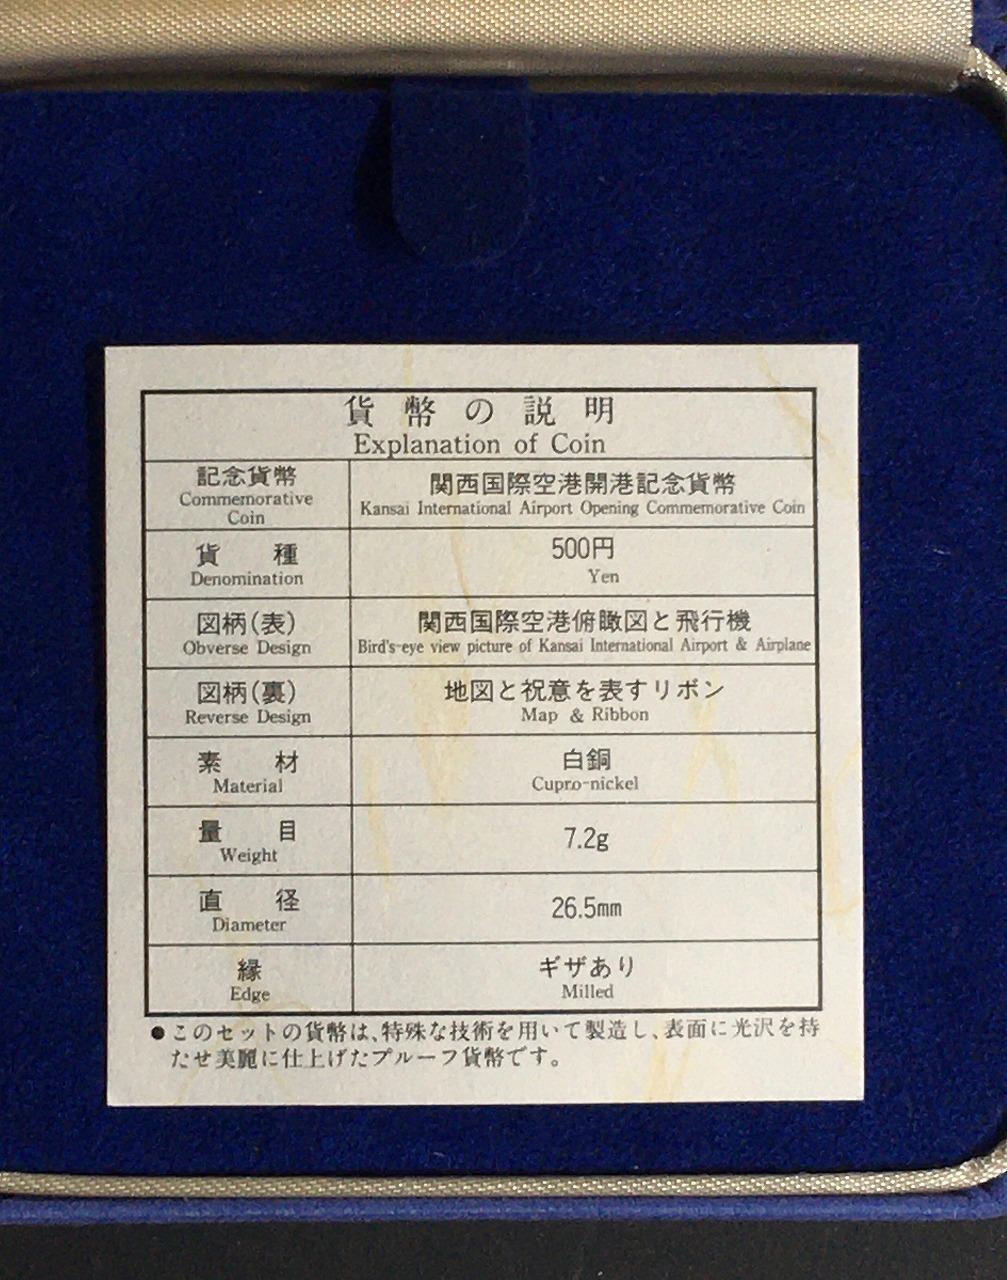 貨幣の説明
Explanation of Coin
記念貨幣
Commemorative
Coin
関西国際空港開港記念貨幣
Kansai International Airport Opening Commemorative Coin
貨種
Denomination
500円
Yen
図柄(表)
Obverse Design
関西国際空港俯瞰図と飛行機
Bird's-eye view picture of Kansai International Airport & Airplane
図柄(裏)
Reverse Design
地図と祝意を表すリボン
Map & Ribbon
素材
Material
白銅
Cupro-nickel
量目
Weight
7.2g
直径
Diameter
26.5mm
縁
Edge
ギザあり
Milled
●このセットの貨幣は、特殊な技術を用いて製造し、表面に光沢を持
たせ美麗に仕上げたプルーフ貨幣です。